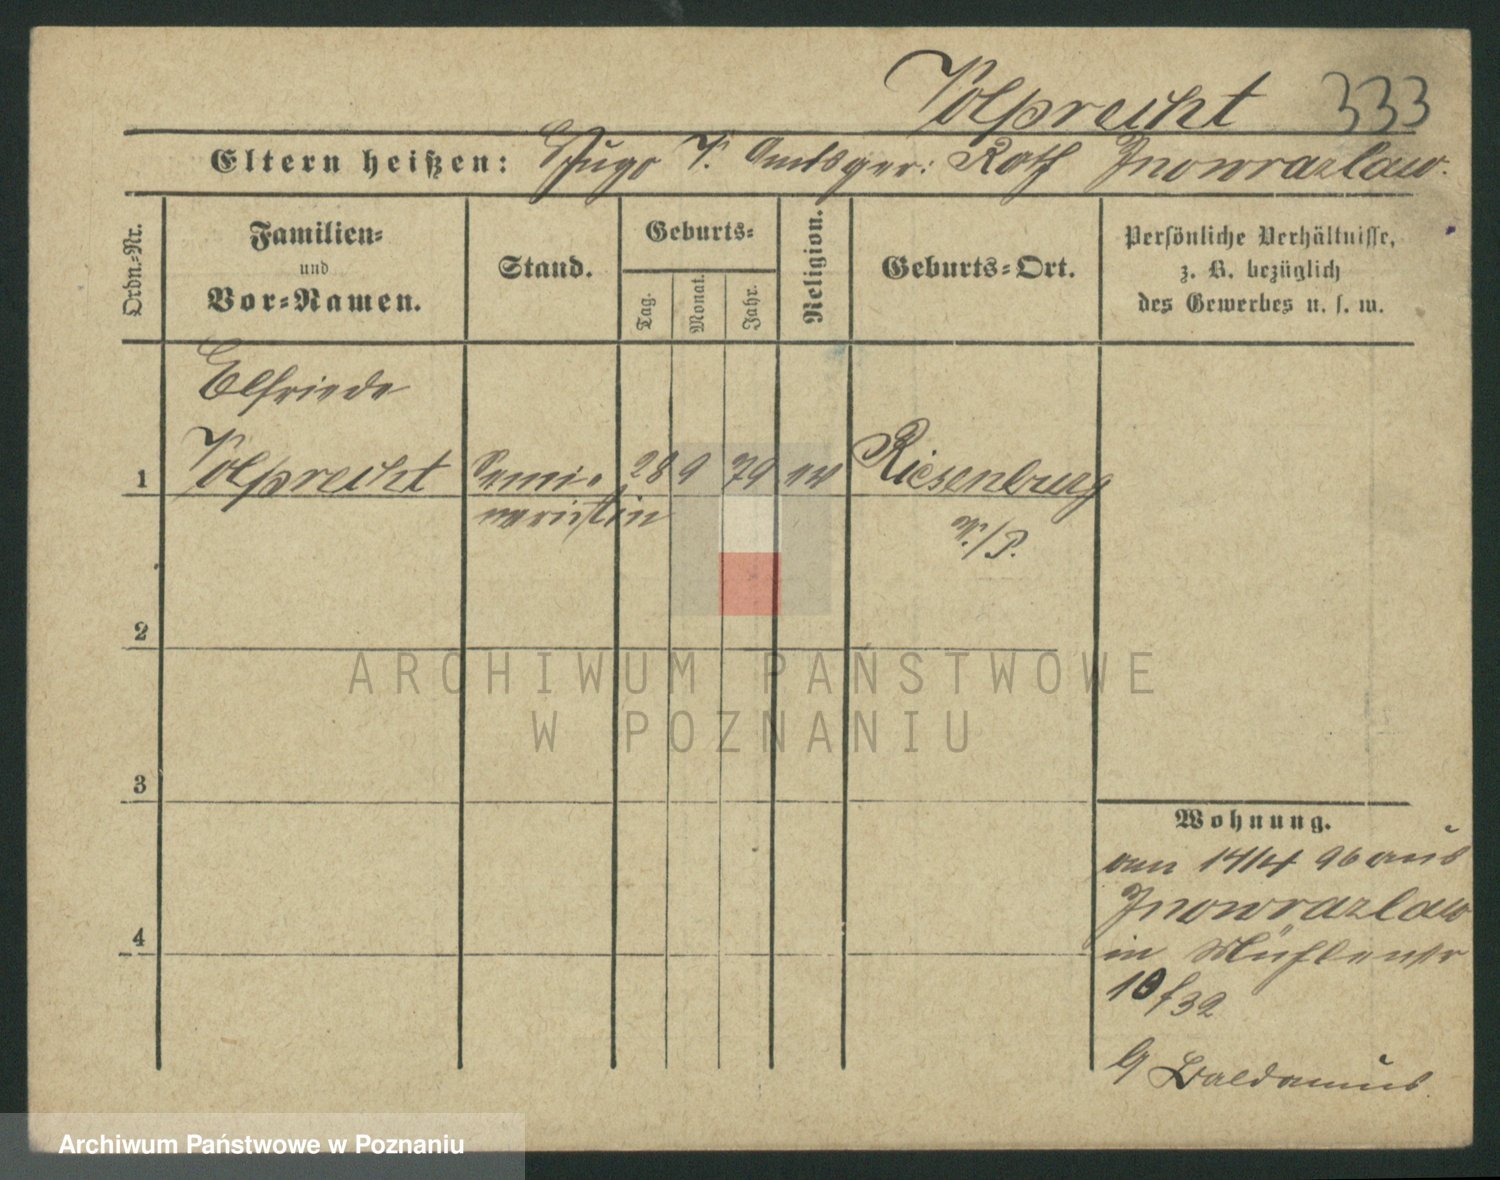 Volprecht 333
Eltern heißen: Hugo V. Amtsger: Rath Inowrazlaw.
Ordn.-Nr.
Familien- und Vor-Namen.
Stand.
Geburts-
Tag.
Monat.
Jahr.
Religion.
Geburts-Ort.
Persönliche Verhältnisse,
z. B. bezüglich
des Gewerbes u. s. w.
Elfriede
1 Volprecht Semi- 28 9 79 ev Riesenburg
naristin W./P.
2
3
4
Wohnung.
am 14/4 96 aus
Inowrazlaw
in Mühlenstr
10 / 32
b/ Baldamus
ARCHIWUM PAŃSTWOWE
W POZNANIU
Archiwum Państwowe w Poznaniu